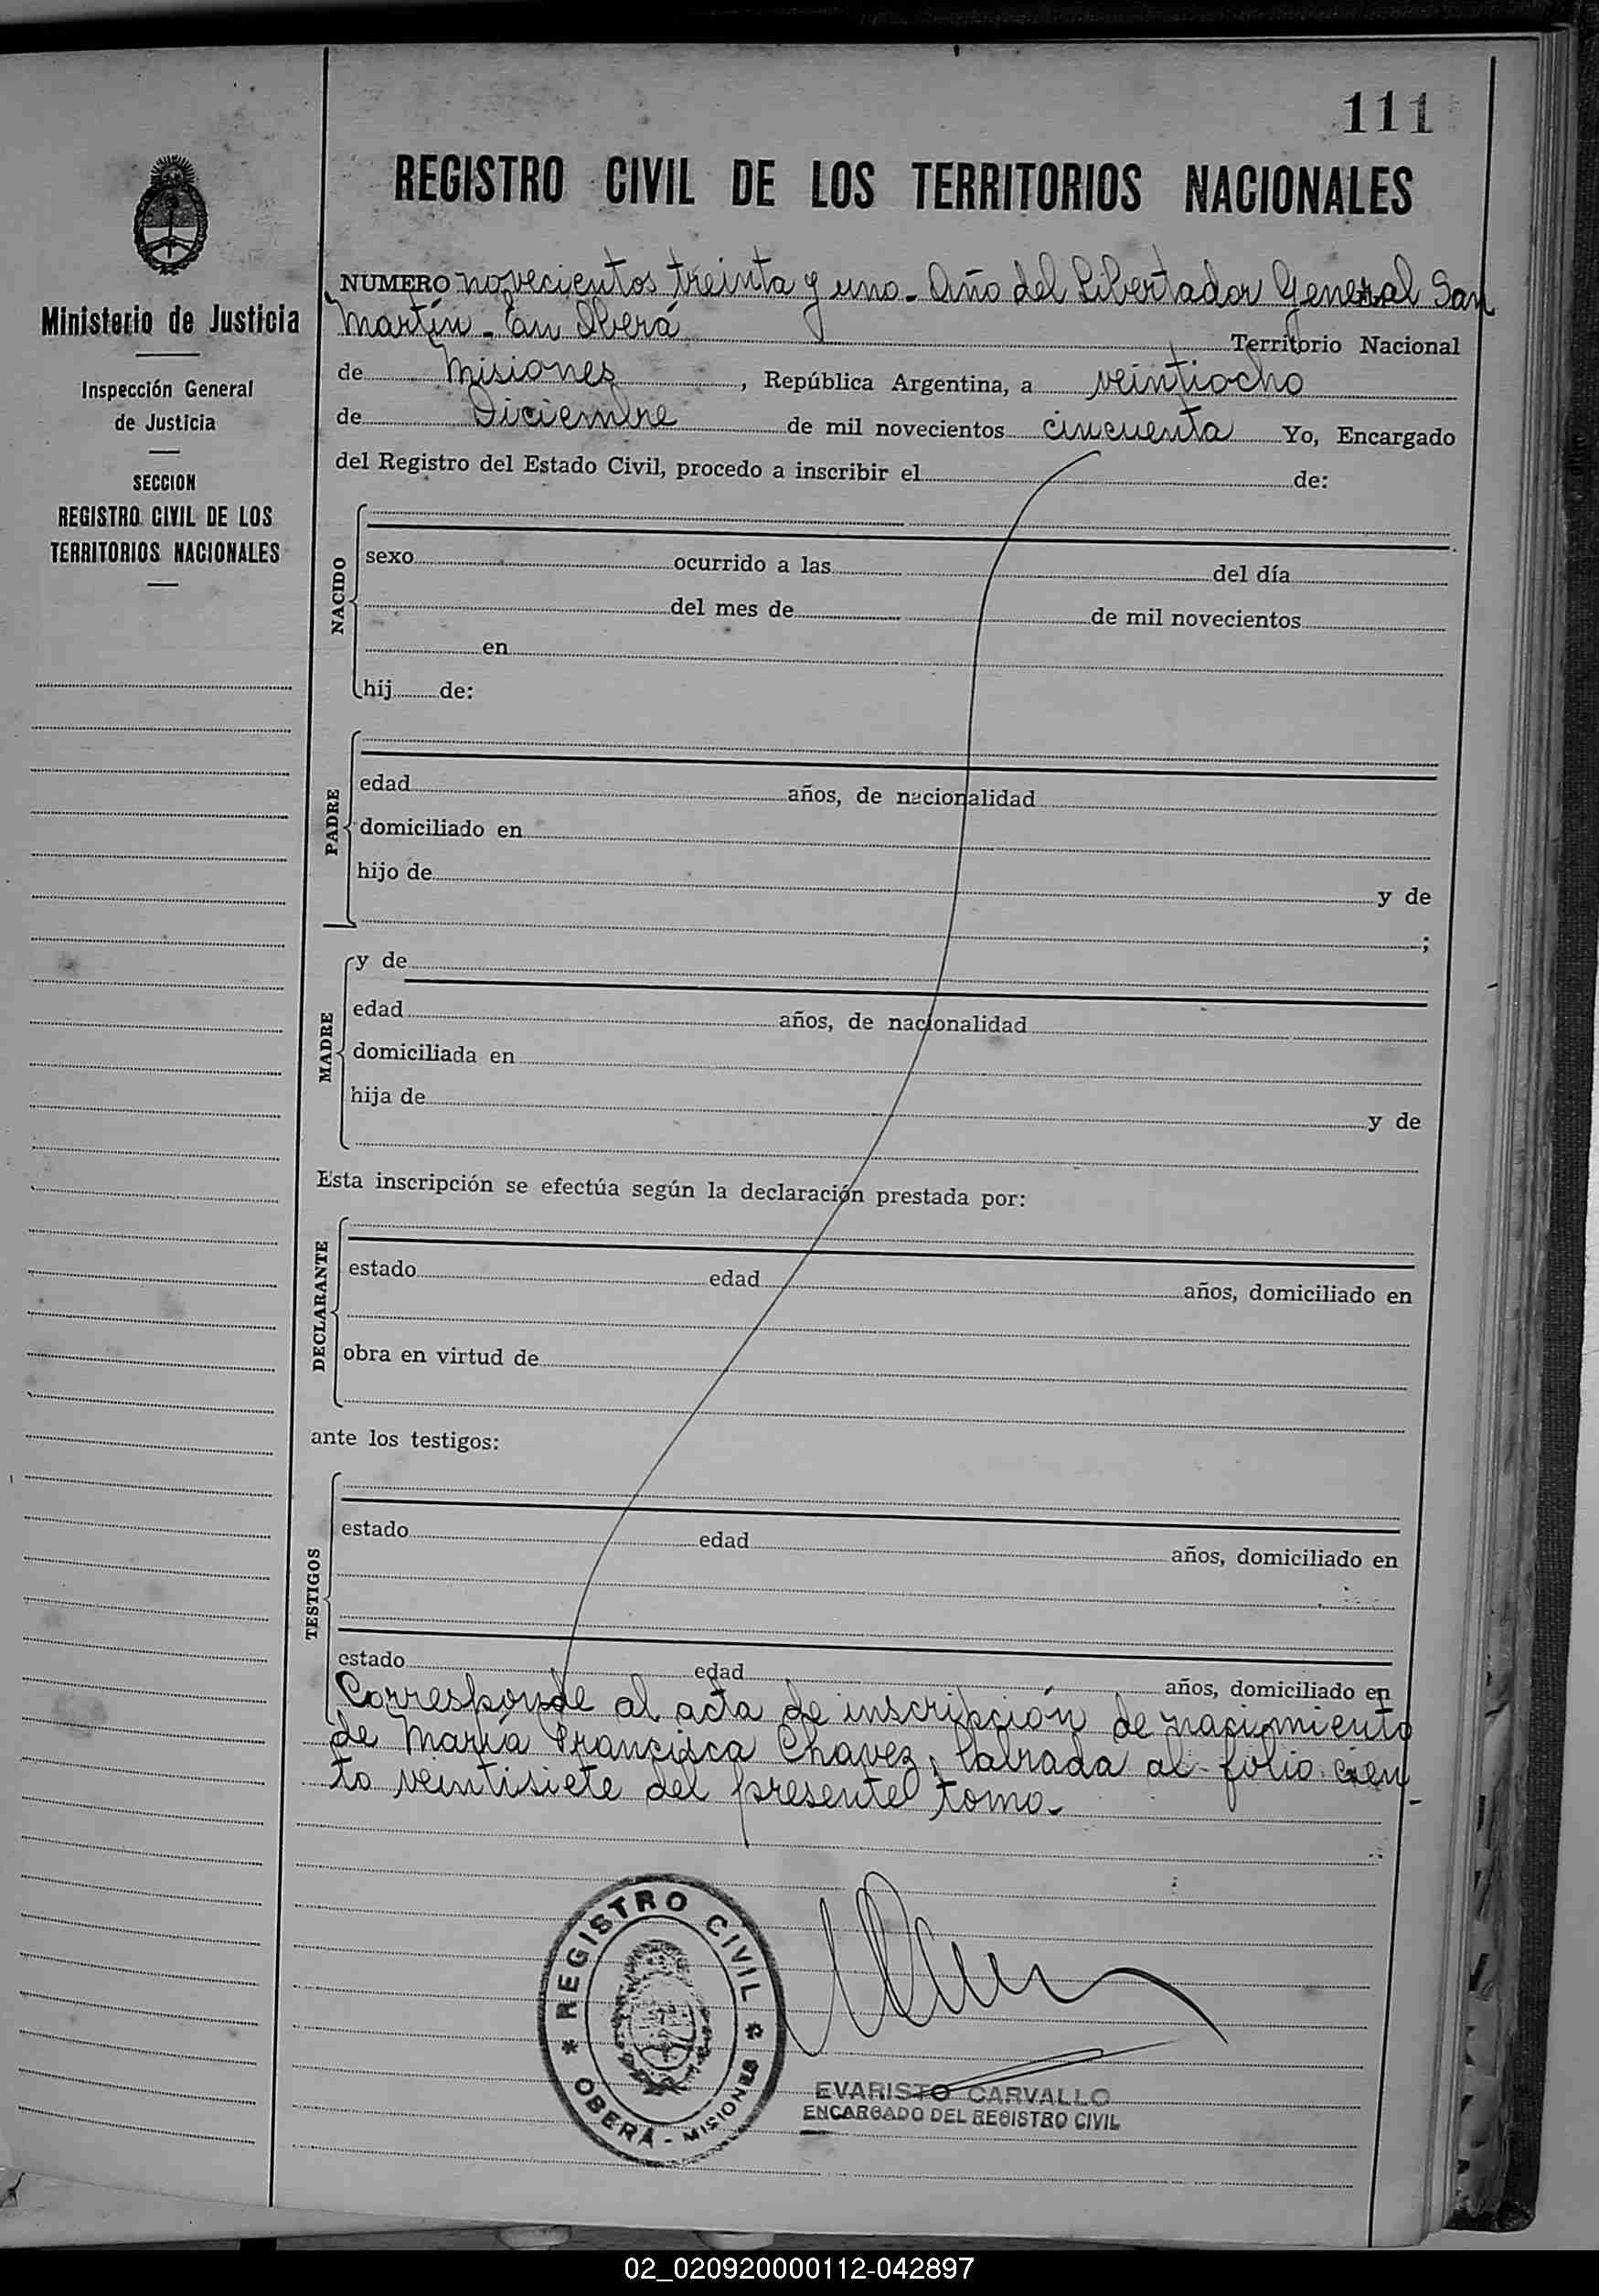 111
REGISTRO CIVIL DE LOS TERRITORIOS NACIONALES
Ministerio de Justicia
Inspección General
de Justicia
SECCION
REGISTRO CIVIL DE LOS
TERRITORIOS NACIONALES
NUMERO novecientos treinta y uno - Año del Libertador General San
Martín - En Oberá Territorio Nacional
de Misiones, República Argentina, a veintiocho
de Diciembre de mil novecientos cincuenta Yo, Encargado
del Registro del Estado Civil, procedo a inscribir el de:
NACIDO
sexo ocurrido a las del día
del mes de de mil novecientos
en
hij de:
PADRE
edad años, de nacionalidad
domiciliado en
hijo de y de
;
MADRE
y de
edad años, de nacionalidad
domiciliada en
hija de y de
Esta inscripción se efectúa según la declaración prestada por:
DECLARANTE
estado edad años, domiciliado en
obra en virtud de
ante los testigos:
TESTIGOS
estado edad años, domiciliado en
estado edad años, domiciliado en
Corresponde al acta de inscripción de nacimiento
de María Francisca Chavez, labrada al folio cien
to veintisiete del presente tomo.
* REGISTRO CIVIL *
OBERÁ - MISIONES
EVARISTO CARVALLO
ENCARGADO DEL REGISTRO CIVIL
02_020920000112-042897